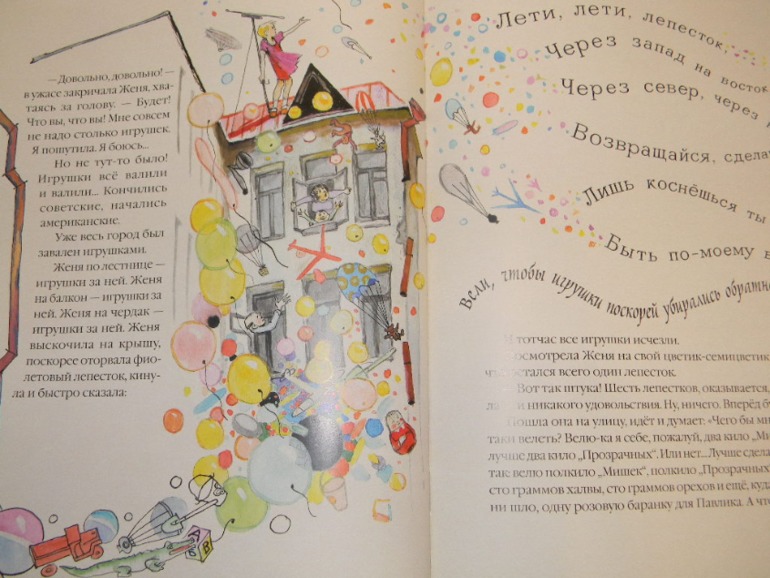 — Довольно, довольно! —
в ужасе закричала Женя, хва-
таясь за голову. — Будет!
Что вы, что вы! Мне совсем
не надо столько игрушек.
Я пошутила. Я боюсь...
Но не тут-то было!
Игрушки всё валили
и валили... Кончились
советские, начались
американские.
Уже весь город был
завален игрушками.
Женя по лестнице —
игрушки за ней. Женя
на балкон — игрушки за
ней. Женя на чердак —
игрушки за ней. Женя
выскочила на крышу,
поскорее оторвала фио-
летовый лепесток, кину-
ла и быстро сказала:
A
B
Лети, лети, лепесток,
Через запад на восток
Через север, через
Возвращайся, сдела
Лишь коснёшься ты
Быть по-моему в
Вели, чтобы игрушки поскорей убирались обратн
И тотчас все игрушки исчезли.
осмотрела Женя на свой цветик-семицветик
стался всего один лепесток.
Вот так штука! Шесть лепестков, оказывается,
и никакого удовольствия. Ну, ничего. Вперёд бу
ошла она на улицу, идёт и думает: «Чего бы мн
таки велеть? Велю-ка я себе, пожалуй, два кило „Миш
лучше два кило „Прозрачных“. Или нет... Лучше сдела
так: велю полкило „Мишек“, полкило „Прозрачных
сто граммов халвы, сто граммов орехов и ещё, куд
ни шло, одну розовую баранку для Павлика. А что